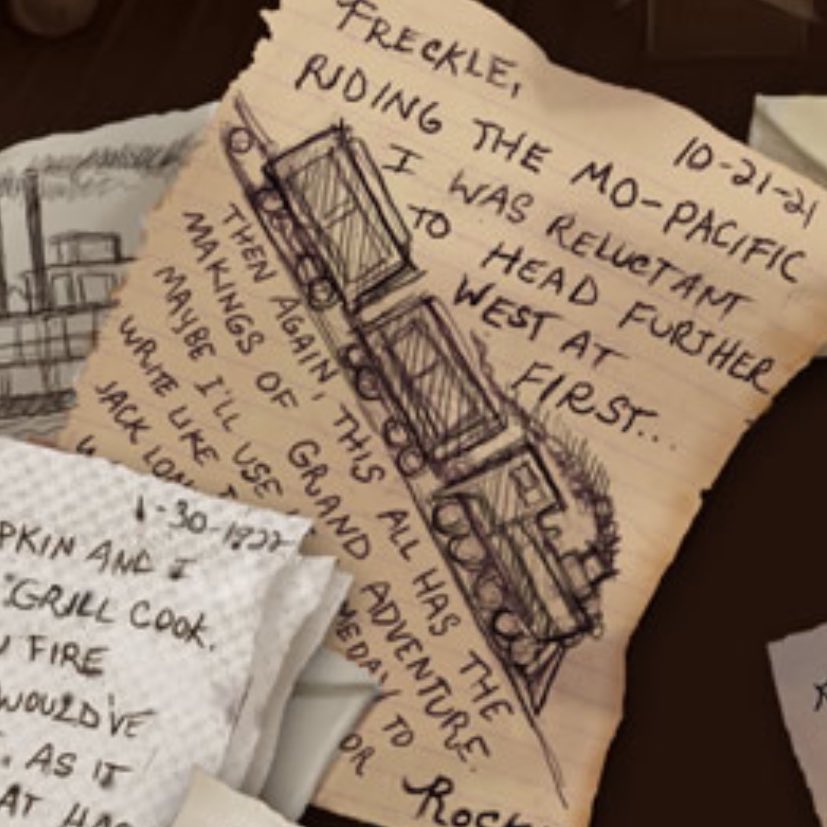 FRECKLE,
10-21-21
RIDING THE MO-PACIFIC
I WAS RELUCTANT
TO HEAD FURTHER
WEST AT
FIRST...
THEN AGAIN, THIS ALL HAS THE
MAKINGS OF GRAND ADVENTURE.
MAYBE I'LL USE
MEDAY TO
WRITE LIKE
OR
JACK LON
ROCK
1-30-1922
PKIN AND I
GRILL COOK.
FIRE
WOULD'VE
. AS IT
AT HA